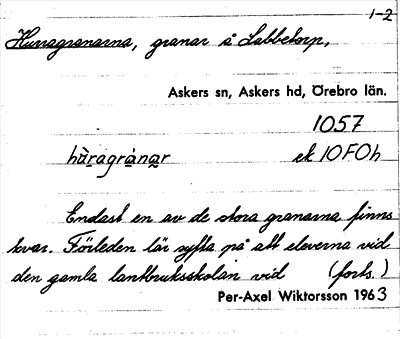 1-2
Hurragranarna, granar å Labbetorp,
Askers sn, Askers hd, Örebro län.
1057
hùragrànar ek 10F0h
Endast en av de stora granarna finns
kvar. Förleden lär syfta på att eleverna vid
den gamla lantbruksskolan vid (forts.)
Per-Axel Wiktorsson 1963